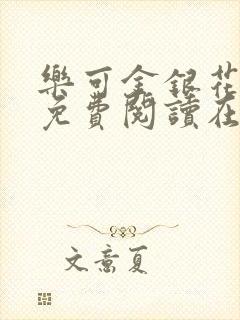 樂可金銀花
免費閱讀在
文意夏